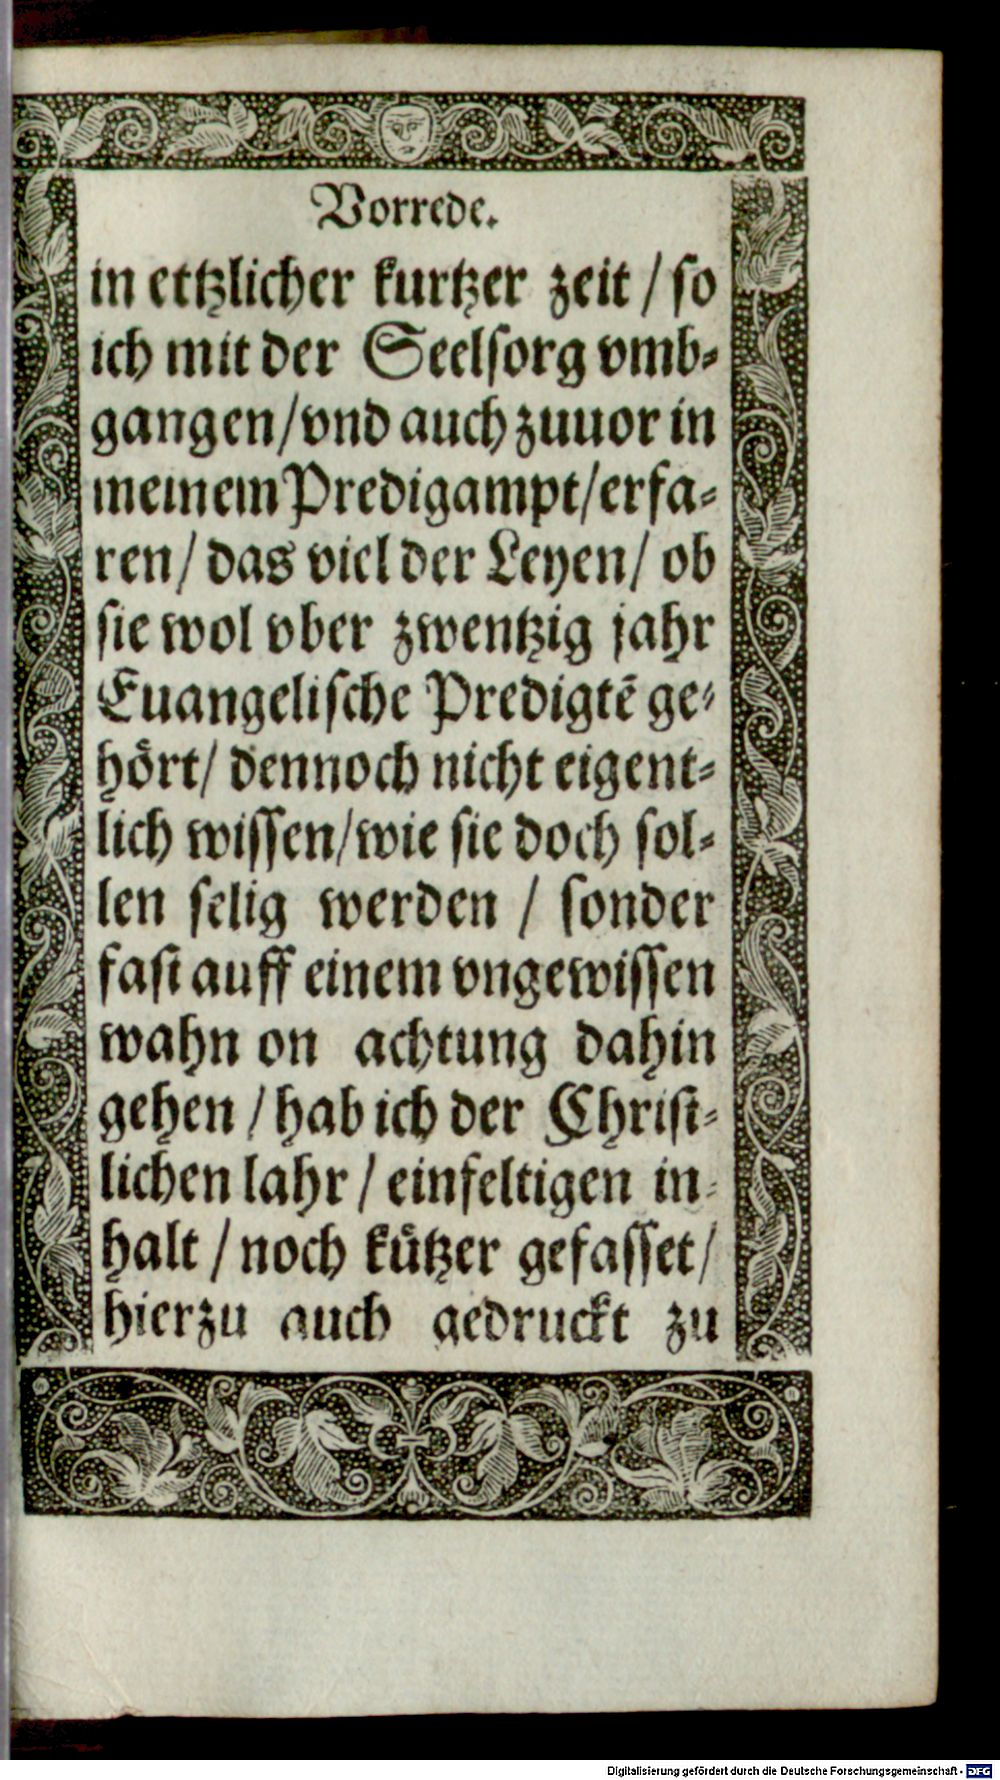 Vorrede.
in ettzlicher kurtzer zeit / so
ich mit der Seelsorg vmb⸗
gangen/vnd auch zuuor in
meinem Predigampt/erfa⸗
ren/ das viel der Leyen/ ob
sie wol vber zwentzig jahr
Euangelische Predigtē ge⸗
hört/ dennoch nicht eigent⸗
lich wissen/wie sie doch sol⸗
len selig werden / sonder
fast auff einem vngewissen
wahn on achtung dahin
gehen / hab ich der Christ⸗
lichen lahr / einfeltigen in⸗
halt / noch kützer gefasset/
hierzu auch gedruckt zu
Digitalisierung gefördert durch die Deutsche Forschungsgemeinschaft - DFG